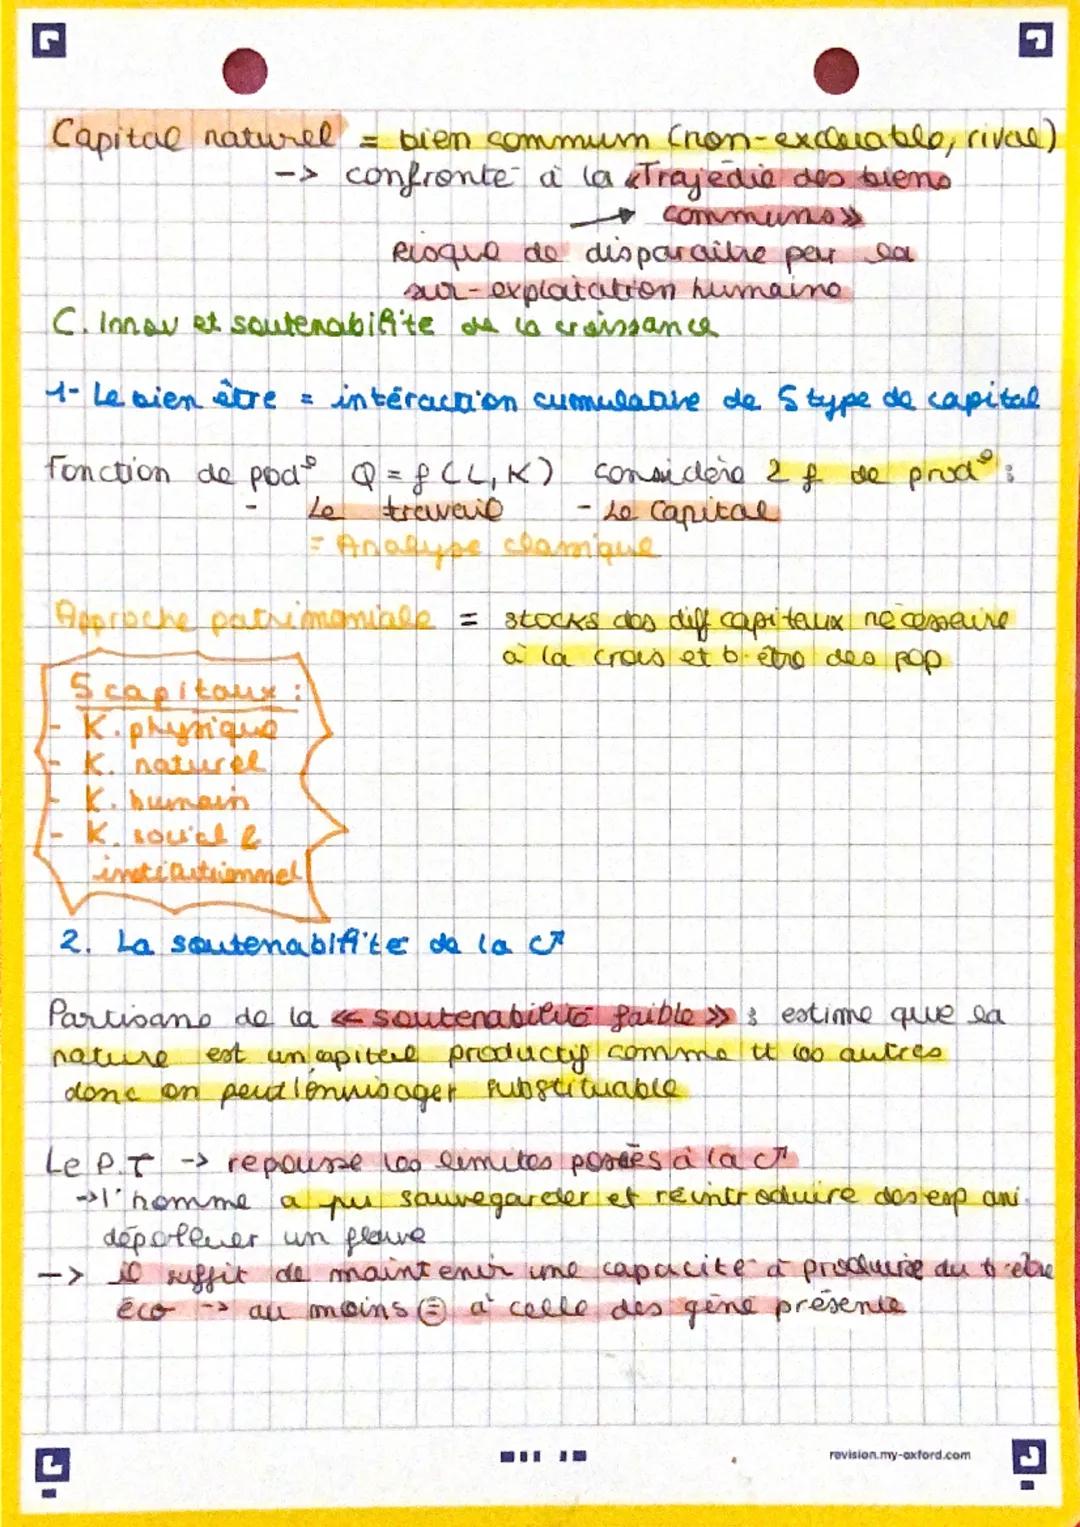 Capital naturel = bien commum (non-excluable, rival)
-> confronté à la «Trajédie des biens
communs»
Risque de disparaitre par la
sur-exploitation humaine
C. Innov et soutenabilité de la croissance
1- Le bien être = intéraction cumulative de 5 type de capital
Fonction de pod° Q = f (L, K) considère 2 f de prod° :
- Le travail - Le Capital
= Analyse classique
Approche patrimoniale = stocks des diff capitaux nécessaire
à la crois et b. être des pop
5 capitaux :
- K. physique
- K. naturel
- K. humain
- K. social &
institutionnel
2. La soutenabilité de la c↗
Partisans de la « soutenabilité faible » : estime que la
nature est un capital productif comme tt les autres
donc on peut l'envisager substituable
Le P.T -> repousse les limites posées à la c↗
->l'homme a pu sauvegarder et réintroduire des esp ani.
dépolluer un fleuve
-> il suffit de maintenir une capacité à produire du b-être
éco -> au moins (=) à celle des géné présente
revision.my-oxford.com